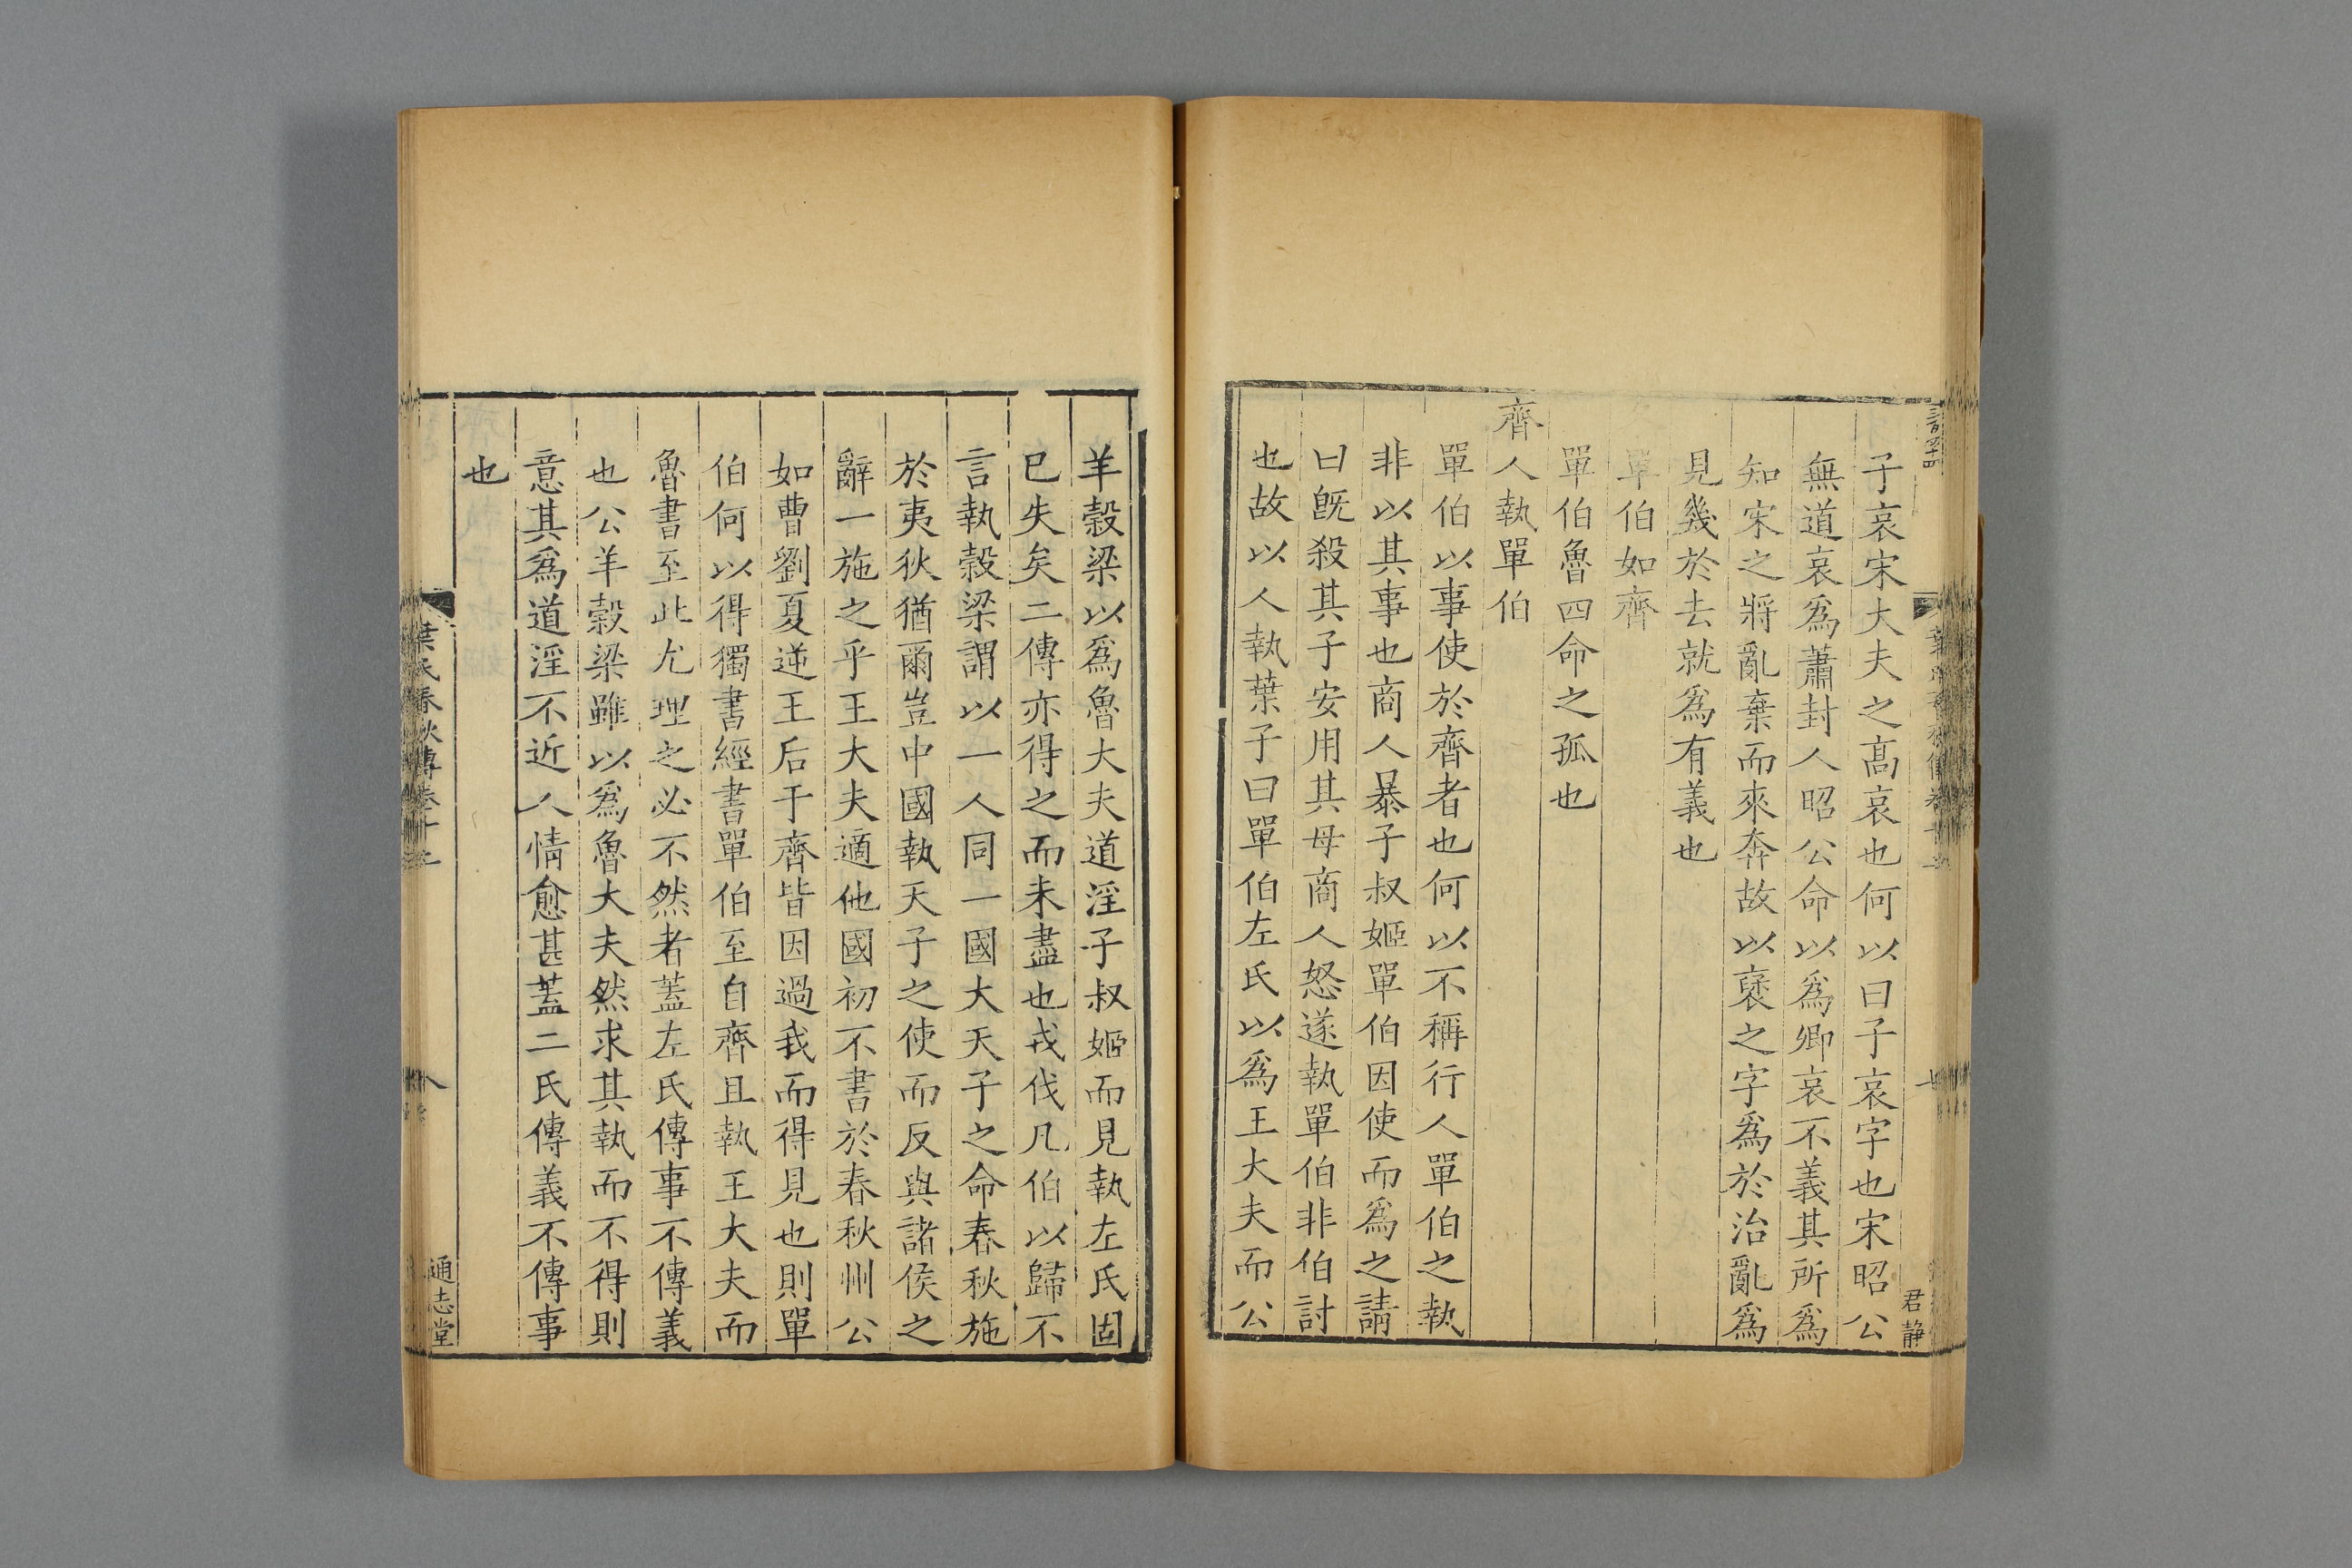 子哀宋大夫之髙哀也何以曰子哀字也宋昭公
無道哀爲蕭封人昭公命以爲卿哀不義其所爲
知宋之將亂棄而來奔故以襃之字爲於治亂爲
見幾於去就爲有義也
單伯如齊
單伯魯四命之孤也
齊人執單伯
單伯以事使於齊者也何以不稱行人單伯之執
非以其事也商人暴子叔姬單伯因使而爲之請
曰旣殺其子安用其母商人怒遂執單伯非伯討
也故以人執葉子曰單伯左氏以爲王大夫而公
君靜
羊穀梁以爲魯大夫道淫子叔姬而見執左氏固
已失矣二傳亦得之而未盡也戎伐凡伯以歸不
言執穀梁謂以一人同一國大天子之命春秋施
於夷狄猶爾豈中國執天子之使而反與諸侯之
辭一施之乎王大夫適他國初不書於春秋州公
如曹劉夏逆王后于齊皆因過我而得見也則單
伯何以得獨書經書單伯至自齊且執王大夫而
魯書至此尤理之必不然者蓋左氏傳事不傳義
也公羊穀梁雖以爲魯大夫然求其執而不得則
意其爲道淫不近人情愈甚蓋二氏傳義不傳事
也
葉氏春秋傳卷十三
八
通志堂